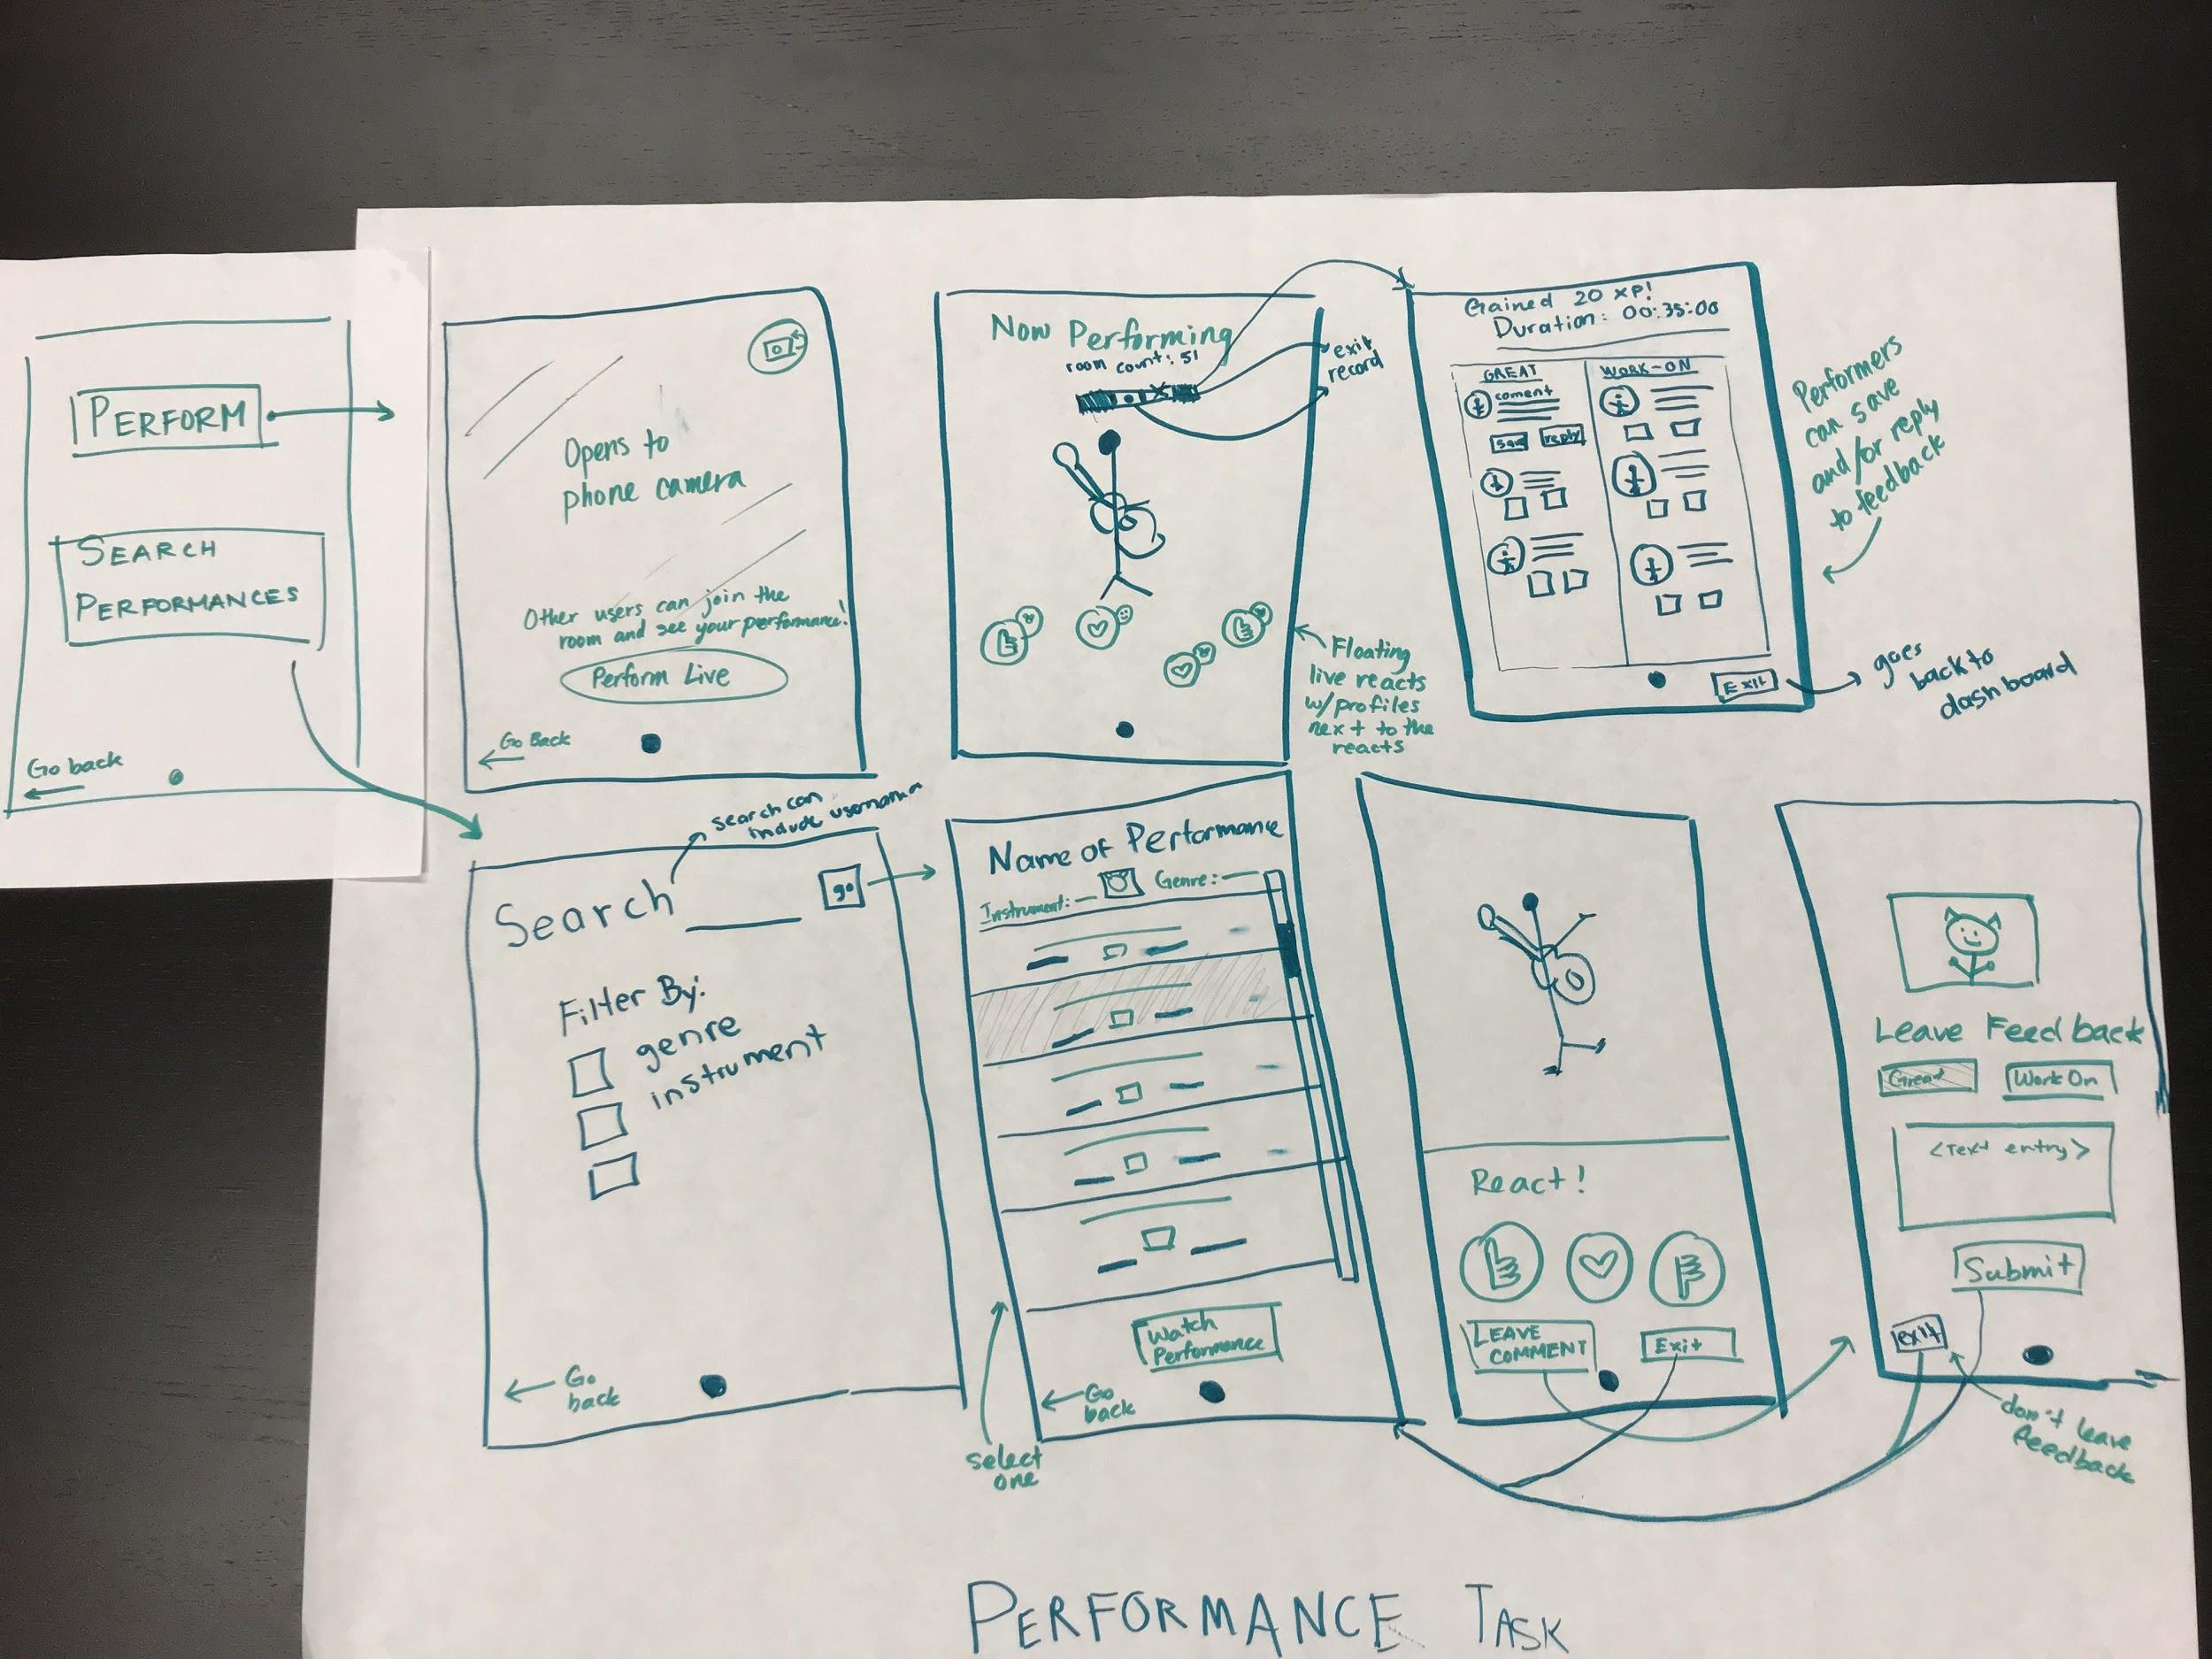 PERFORM
SEARCH
PERFORMANCES
Go back
Opens to
phone camera
Other users can join the
room and see your performance!
Perform Live
Go Back
Now Performing
room count: 51
exit
record
Floating
live reacts
w/profiles
next to the
reacts
Gained 20 XP!
Duration: 00:35:00
GREAT
coment
save
reply
WORK-ON
Exit
Performers
can save
and/or reply
to feedback
goes
back to
dashboard
search can
include username
Search
go
Filter By:
genre
instrument
Go
back
Name of Performance
Instrument:
Genre:
Watch
Performance
Go
back
select
one
React!
LEAVE
COMMENT
Exit
Leave Feedback
Great
Work On
<Text entry>
Submit
exit
don't leave
feedback
PERFORMANCE TASK